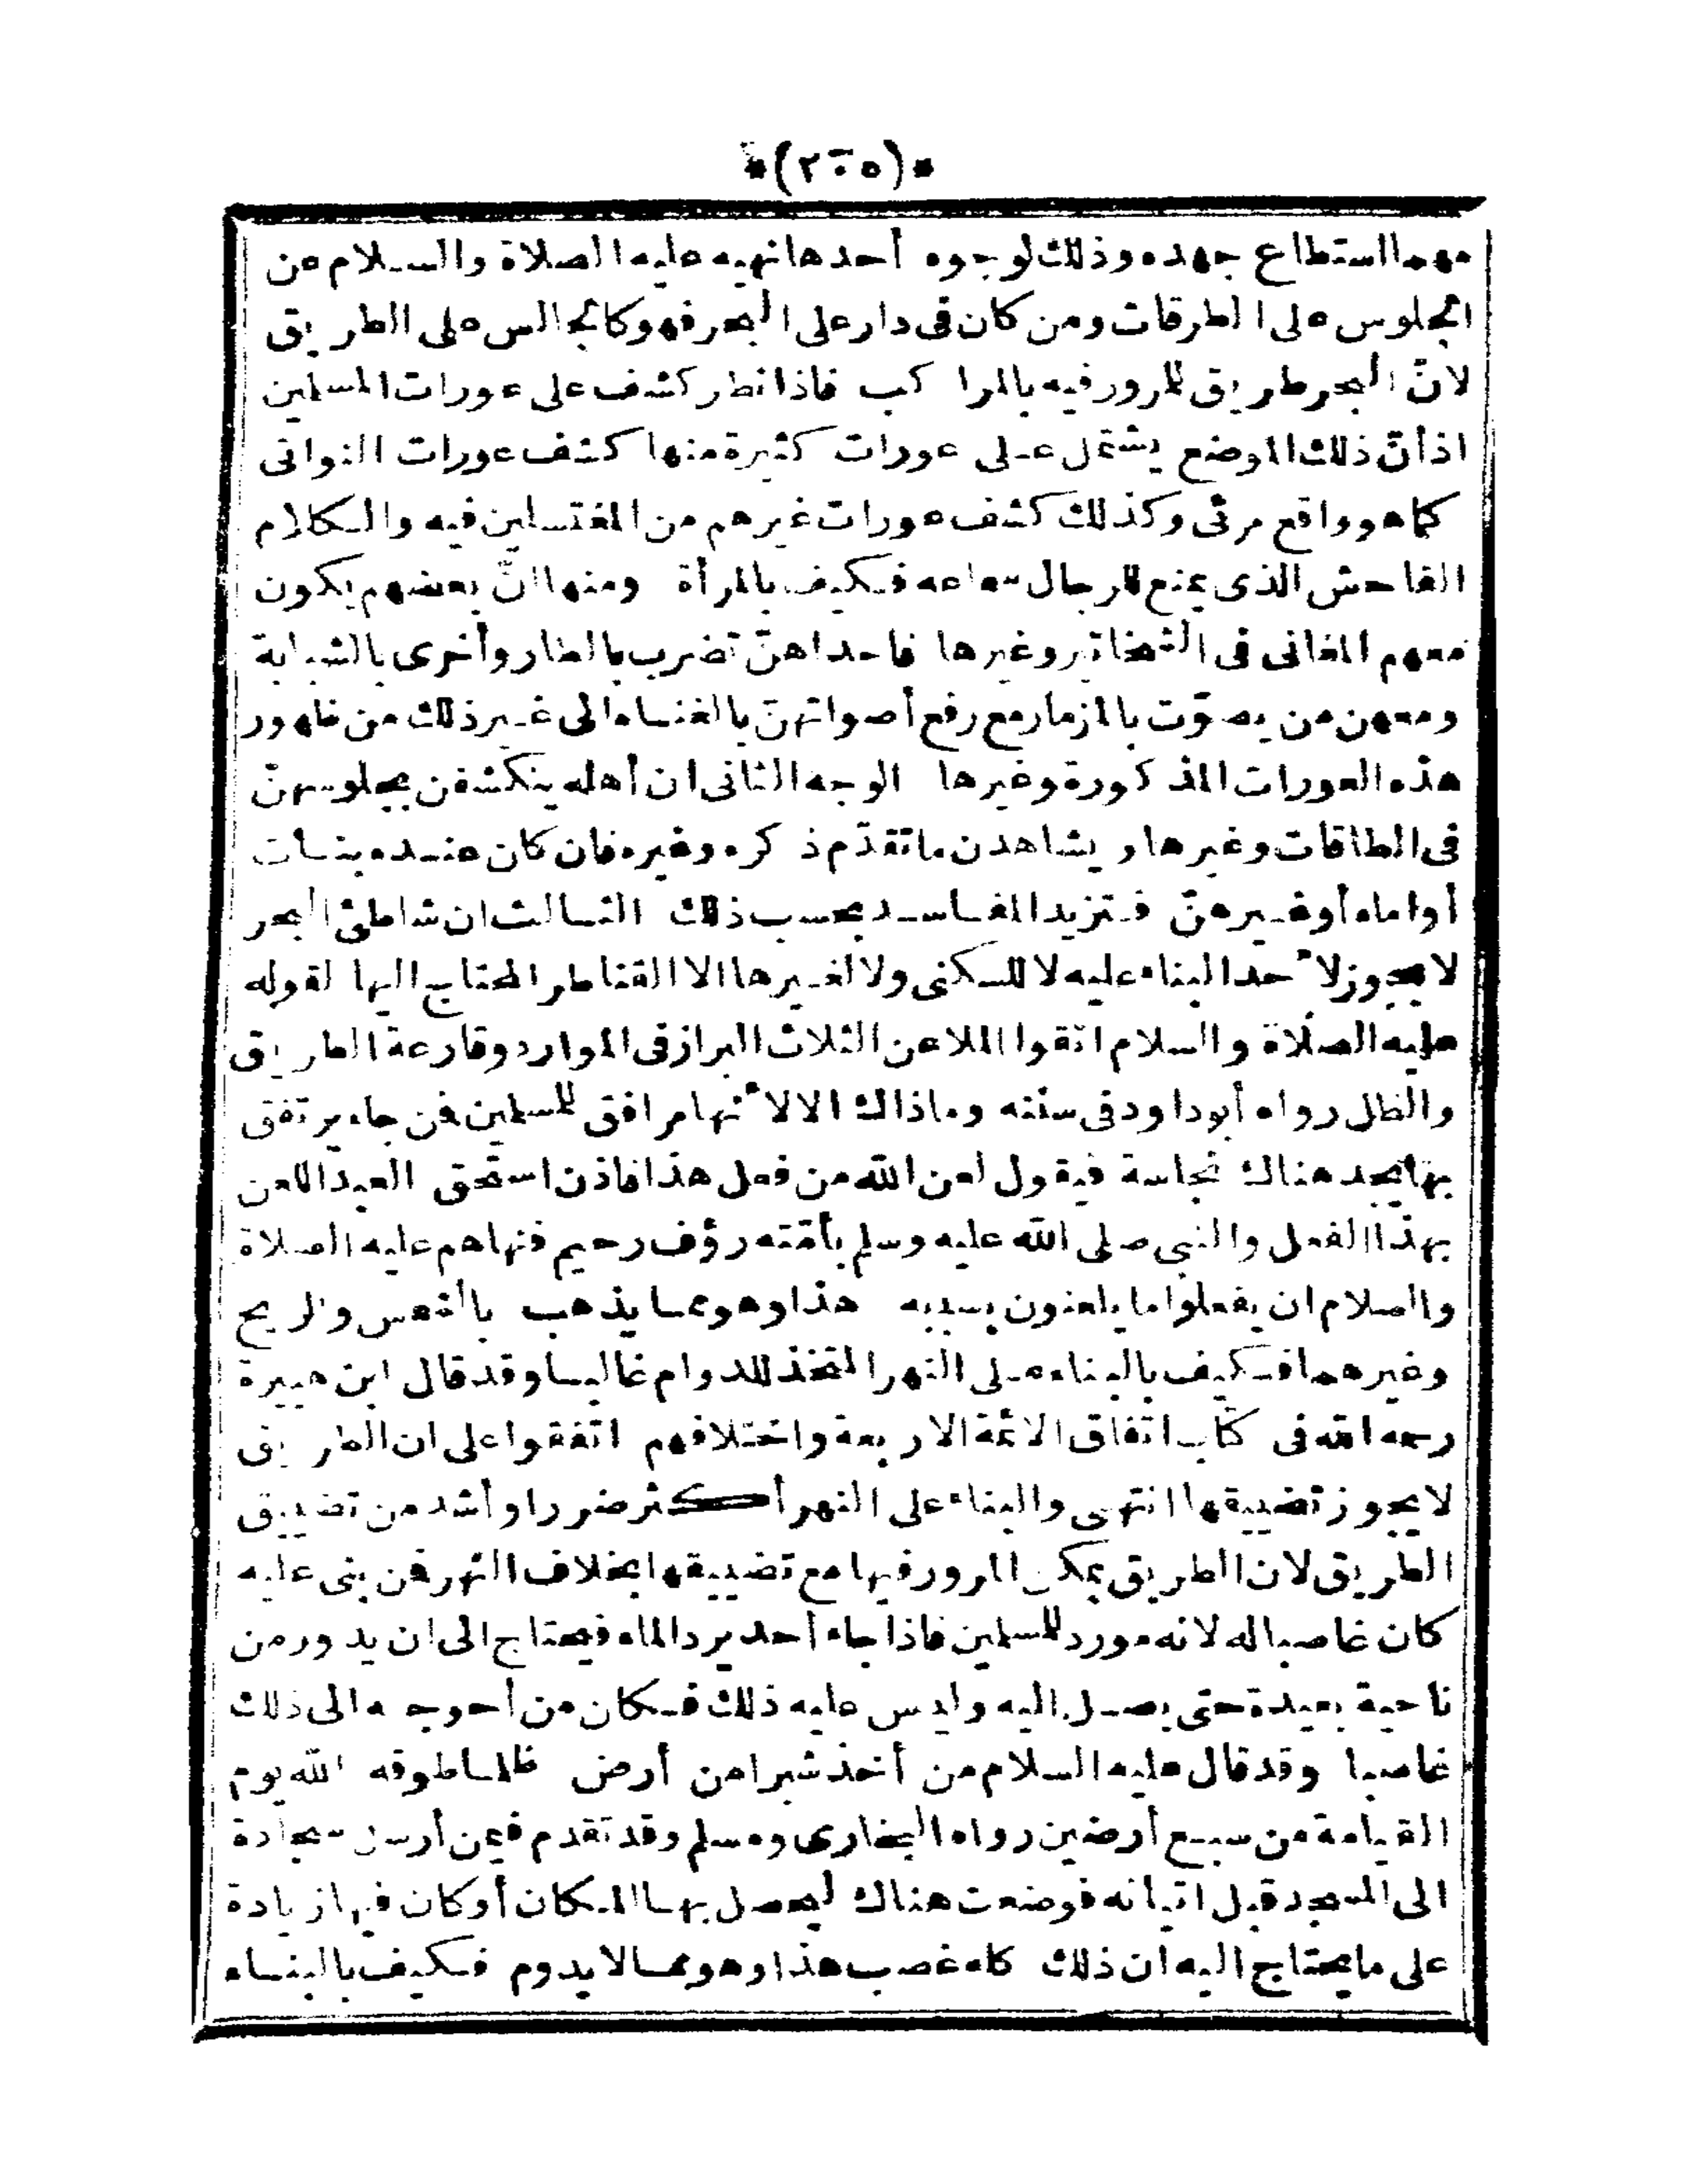 *(٢٠٥)*
مهما استطاع جهده وذلك لوجوه أحدها نهيه عليه الصلاة والسلام عن
الجلوس على الطرقات ومن كان فى دار على البحر فهو كالجالس على الطريق
لانّ البحر طريق للمرور فيه بالمراكب فاذا نظر كشف على عورات المسلمين
اذ أنّ ذلك الموضع يشتمل على عورات كثيرة منها كشف عورات النواتى
كما هو واقع مرئى وكذلك كشف عورات غيرهم من المغتسلين فيه والكلام
الفاحش الذى يمنع للرجال سماعه فكيف بالمرأة ومنها انّ بعضهم يكون
معهم المغانى فى الشخاتير وغيرها فاحداهنّ تضرب بالطار وأخرى بالشبابة
ومعهن من يصوّت بالمزمار مع رفع أصواتهنّ بالغناء الى غير ذلك من ظهور
هذه العورات المذكورة وغيرها الوجه الثانى ان أهله ينكشفن بجلوسهنّ
فى الطاقات وغيرها ويشاهدن ما تقدّم ذكره وغيره فان كان عنده بنات
أو اماء أو غيرهنّ فتزيد المفاسد بحسب ذلك الثالث ان شاطئ البحر
لا يجوز لأحد البناء عليه لا للسكنى ولا لغيرها الا القناطر المحتاج اليها لقوله
عليه الصلاة والسلام اتقوا الملاعن الثلاث البراز فى الموارد وقارعة الطريق
والظل رواه أبو داود فى سننه وما ذاك الا لأنها مرافق للمسلمين فمن جاء يرتفق
بها يجد هناك نجاسة فيقول لعن الله من فعل هذا فاذن استحق العبد اللعن
بهذا الفعل والنبى صلى الله عليه وسلم بأمّته رؤف رحيم فنهاهم عليه الصلاة
والسلام ان يفعلوا ما يلعنون بسببه هذا وهو مما يذهب بالشمس والريح
وغيرهما فكيف بالبناء على النهر المتخذ للدوام غالبا وقد قال ابن هبيرة
رحمه الله فى كتاب اتفاق الائمة الاربعة واختلافهم اتفقوا على ان الطريق
لا يجوز تضييقها انتهى والبناء على النهر أكثر ضررا وأشد من تضييق
الطريق لان الطريق يمكن المرور فيها مع تضييقها بخلاف النهر فمن بنى عليه
كان غاصبا له لانه مورد للمسلمين فاذا جاء أحد يرد الماء فيحتاج الى ان يدور من
ناحية بعيدة حتى يصل اليه وليس عليه ذلك فكان من أحوجه الى ذلك
غاصبا وقد قال عليه السلام من أخذ شبرا من أرض ظلما طوقه الله يوم
القيامة من سبع أرضين رواه البخارى ومسلم وقد تقدم فيمن أرسل سجادة
الى المسجد قبل اتيانه فوضعت هناك ليحصل بها المكان أو كان فيها زيادة
على ما يحتاج اليه ان ذلك كله غصب هذا وهو مما لا يدوم فكيف بالبناء